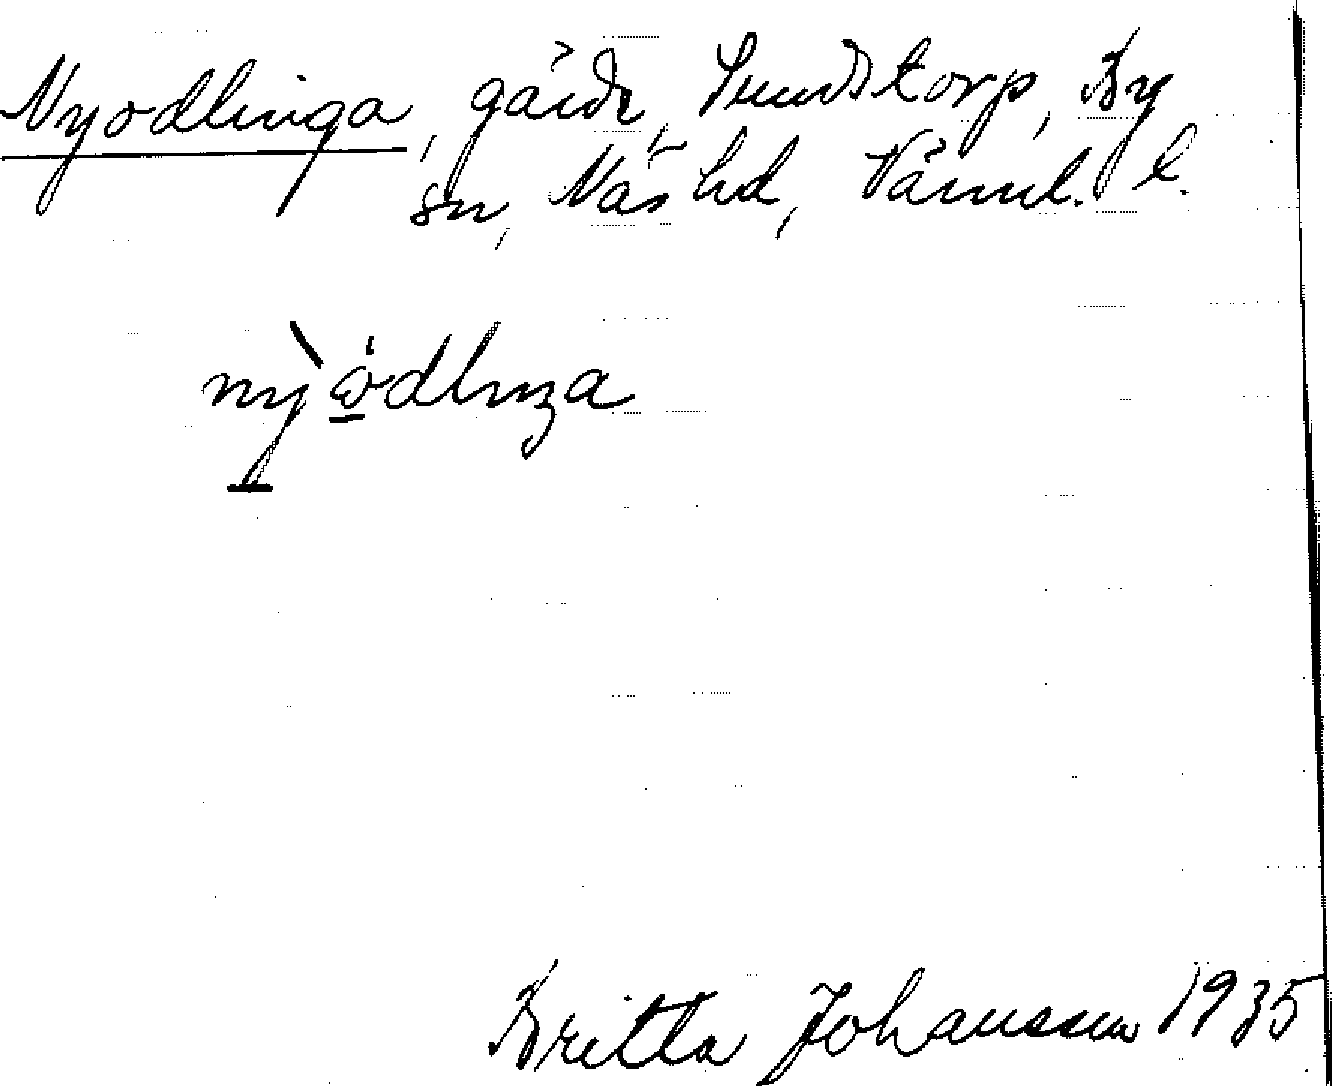 Nyodlinga, gård, Sundstorp, By
sn, Näs hd, Värml. l.
Britta Johansson 1935